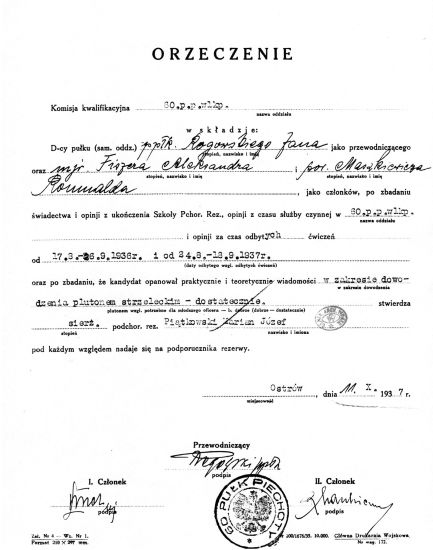 ORZECZENIE
Komisja kwalifikacyjna 60.p.p.wlkp.
nazwa oddziału
w składzie:
D-cy pułku (sam. oddz.) ppłk. Rogowski Jana jako przewodniczącego
stopień, nazwisko i imię
oraz mjr. Fiszera Aleksandra i por.
stopień, nazwisko i imię stopień, nazwisko i imię
Romualda, jako członków, po zbadaniu
świadectwa i opinji z ukończenia Szkoły Pchor. Rez., opinji z czasu służby czynnej w 60.p.p.wlkp.
nazwa oddziału
i opinji za czas odbytych ćwiczeń
od 17.8.-26.9.1936r. i od 24.8.-18.9.1937r.
(daty odbytej wzgl. odbytych ćwiczeń)
oraz po zbadaniu, że kandydat opanował praktycznie i teoretycznie wiadomości w zakresie dowo-
w zakresie dowodzenia
dzenia plutonem strzeleckim - dostatecznie. stwierdza
plutonem wzgl. potrzebne dla młodszego oficera — b. dobrze (dobrze — dostatecznie)
sierż. podchor. rez. Piątkowski Marian Józef
stopień nazwisko i imiona
pod każdym względem nadaje się na podporucznika rezerwy.
Ostrów, dnia 11. X. 1937 r.
miejscowość
Przewodniczący
podpis
I. Członek II. Członek
podpis podpis
60 PUŁK PIECHOTY
Zał. Nr 4 — Wz. Nr 1. Główna Drukarnia Wojskowa.
Format 210 X 297 mm. Nr wag. 172.